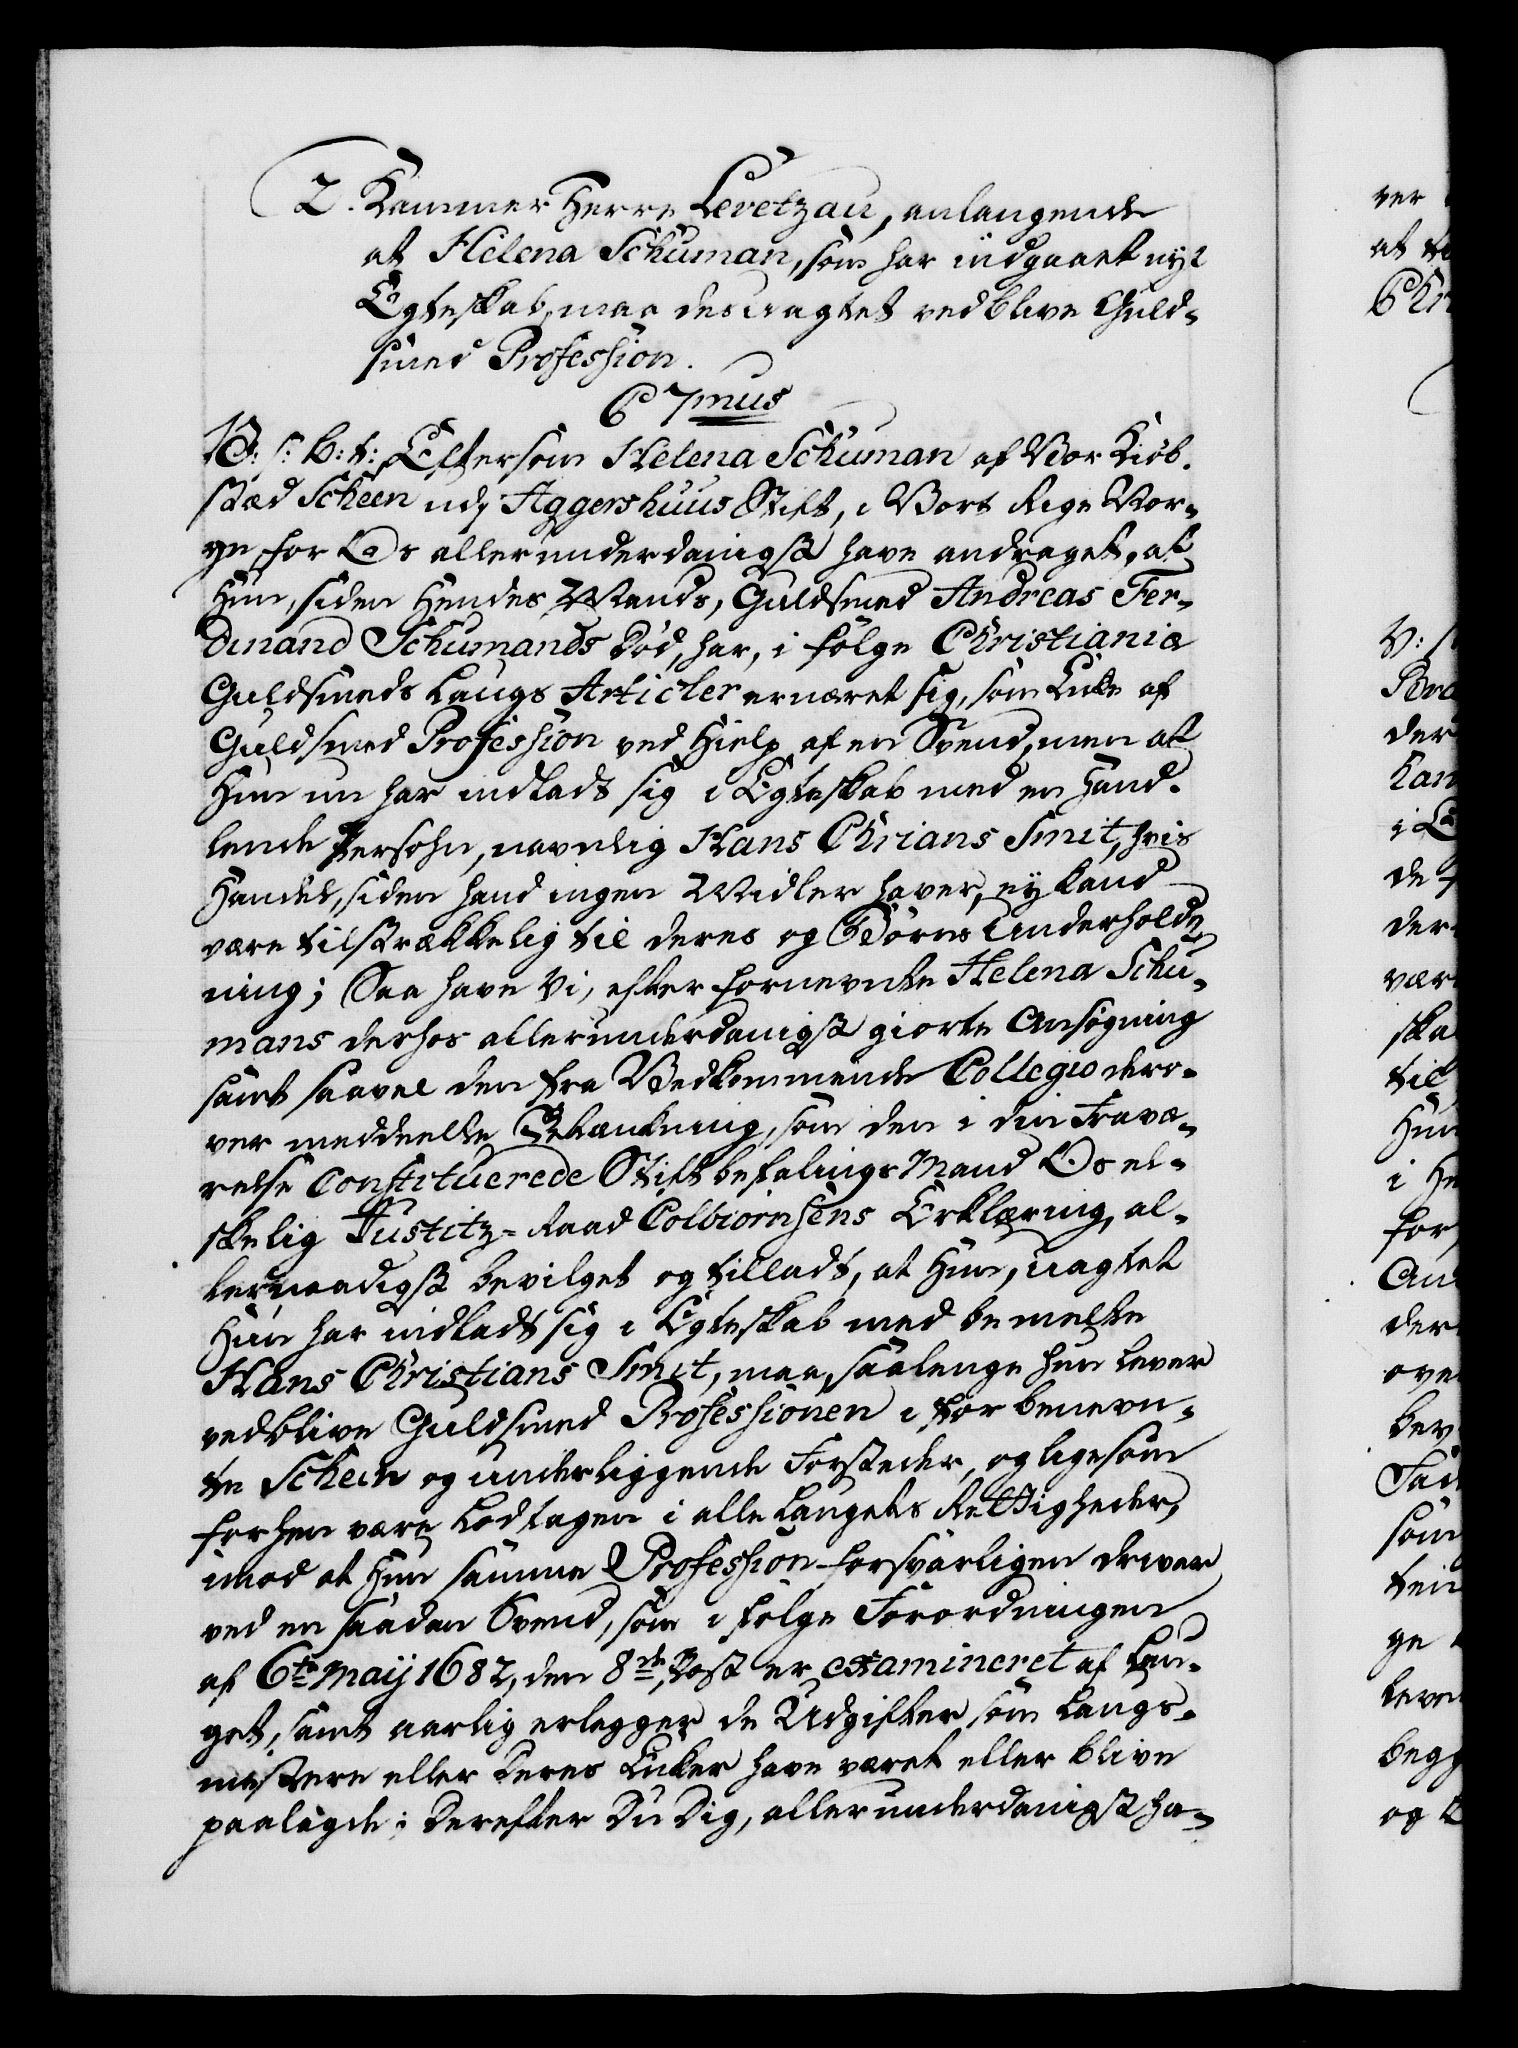 2. Kammer Herre Levetzau, anlangende
at Helena Schuman, som har indgaaet nyt
Egteskab, maa des uagtet vedblive Guld-
smed Profession.
C 7mus
V: s: b: t: Eftersom Helena Schuman af Vor Kiøb-
stæd Scheen udj Aggershuus Stift, i Vort Rige Nor-
ge, for Os allerunderdanigst have andraget, at
Hun, siden Hendes Mands, Guldsmed Andreas Fer-
dinand Schumands død, har, i følge Christiania
Guldsmeds Laugs Articler ernæret sig, som Enke af
Guldsmed Profession ved Hielp af en Svend, men at
Hun nu har indladt sig i Egteskab med en Hand-
lende Persohn, navnlig Hans Chrians Smit, hvis
Handel, siden hand ingen Midler haver, ey kand
være tilstrækkelig til deres og Børns Underhold-
ning; Saa have Vi, efter fornevnte Helena Schu-
mans derhos allerunderdanigst giorte Ansøgning
samt saavel den fra Vedkommende Collegio dero-
ver meddeelte Betænkning, som den i din Fravæ-
relse Constituerede Stiftbefalings Mand Os el-
skelig Justitz-Raad Colbiørnsens Erklæring, al-
lernaadigst bevilget og tilladt, at Hun, uagtet
Hun har indladt sig i Egteskab med bemelte
Hans Christians Smit, maa, saalenge hun lever
vedblive Guldsmed Professionen i forbenevn-
te Scheen og underliggende Forstæder, og ligesom
forhen være Lodtagen i alle Laugets Rettigheder,
imod at Hun samme Profession forsvarligen driver
ved en saadan Svend, som i følge Forordningen
af 6te Maij 1682, den 8de Post er examineret af Lau-
get, samt aarlig erlegger de Udgifter som Laugs-
mestere eller deres Enker have været eller blive
paalagde; Derefter Du Dig, allerunderdanigst ha-